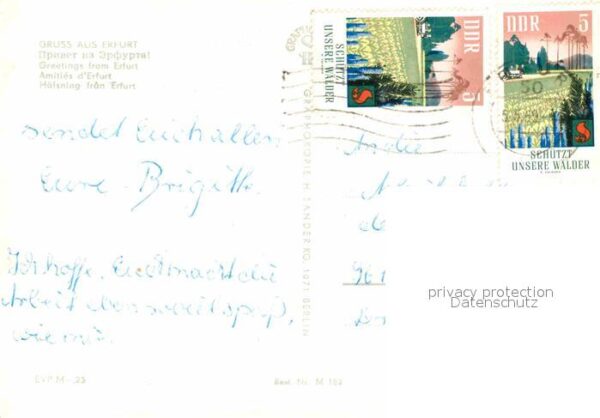 GRUSS AUS ERFURT
Привет из Эрфурта!
Greetings from Erfurt
Amitiés d'Erfurt
Hälsning från Erfurt
sendet Euch allen
Eure Brigitte
Ich hoffe, Euch macht die
Arbeit ebenso viel Spaß,
wie mir.
EVP M -,25
Best. Nr. M 182
H. SANDER KG, 1071 BERLIN
DDR 5
SCHÜTZT
UNSERE WÄLDER
DDR 5
SCHÜTZT
UNSERE WÄLDER
privacy protection
Datenschutz